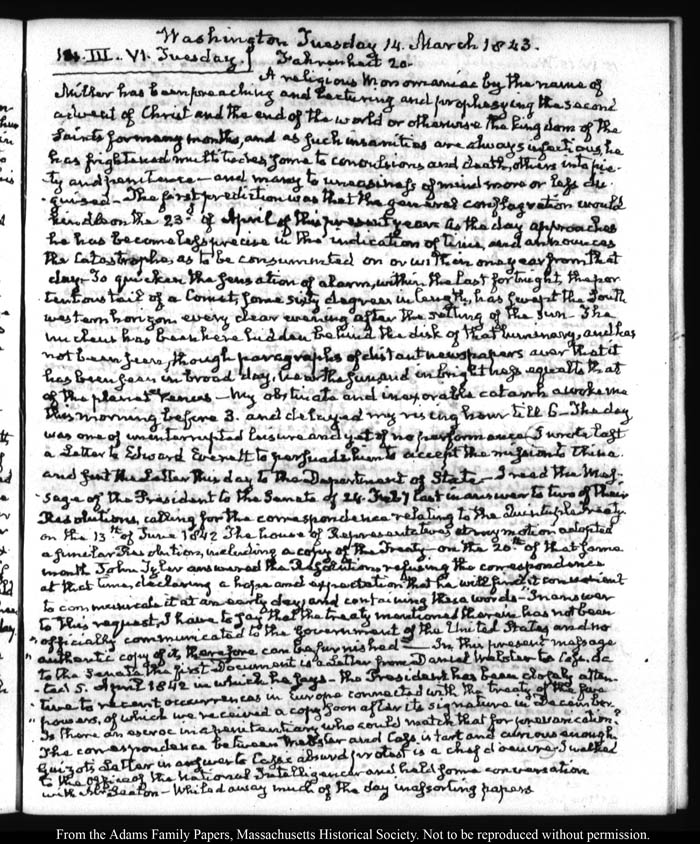 Washington Tuesday 14. March 1843.
III. VI. Tuesday. Fahrenheit 20.
A religious monomaniac by the name of
Miller has been preaching and lecturing and prophesying the second
advent of Christ and the end of the world or otherwise the kingdom of the
Saints for many months, and as such insanities are always infectious, he
has frightened multitudes, some to convulsions and death, others into pie-
ty and penitence — and many to uneasiness of mind more or less dis-
guised — The first prediction was that the general conflagration would
kindle on the 23d. of April of this present year. As the day approaches
he has become less precise in the indication of time, and announces
the Catastrophe, as to be consummated on or within one year from that
day. To quicken the sensation of alarm, within the last fortnight, the por-
tentous tail of a Comet, some sixty degrees in length, has swept the South
western horizon every clear evening after the setting of the Sun. The
nucleus has been here hidden behind the disk of that luminary, and has
not been seen, though paragraphs of distant newspapers aver that it
has been seen in broad day, near the Sun, and in brightness equal to that
of the planet Venus — My obstinate and inexorable catarrh awoke me
this morning before 3. and delayed my rising hour till 6 — The day
was one of uninterrupted leisure and yet of no performance. I wrote last
a Letter to Edward Everett to persuade him to accept the mission to China
and sent the Letter this day to the Department of State — I read the Mes-
sage of the President to the Senate of 24. Feby last in answer to two of their
Resolutions, calling for the correspondence relating to the Quintuple treaty
on the 13th. of June 1842 The house of Representatives at my motion adopted
a similar Resolution, including a copy of the Treaty — on the 20th. of that same
month John Tyler answered the Resolution, refusing the correspondence
at that time, declaring a hope and expectation that he will find it convenient
to communicate it at an early day, and containing these words — "In answer
to this request, I have to say that the treaty mentioned therein has not been
"officially communicated to the Government of the United States, and no
"authentic copy of it, therefore can be furnished" — In this present message
to the Senate the first Document is a Letter from Daniel Webster to Cass, da-
ted 5. April 1842 in which he says — "the President has been closely atten-
tive to recent occurrences in Europe connected with the treaty of the five
"powers, of which we received a copy soon after its signature in December."
Is there an escroc in a penitentiary who could match that for prevarication?
The correspondence between Webster and Cass is tart and curious enough.
Guizot's Letter in answer to Cass's absurd protest is a chef d'oeuvre. I walked
to the Office of the National Intelligencer and held some conversation
with Mr Seaton — Whiled away much of the day in assorting papers
From the Adams Family Papers, Massachusetts Historical Society. Not to be reproduced without permission.